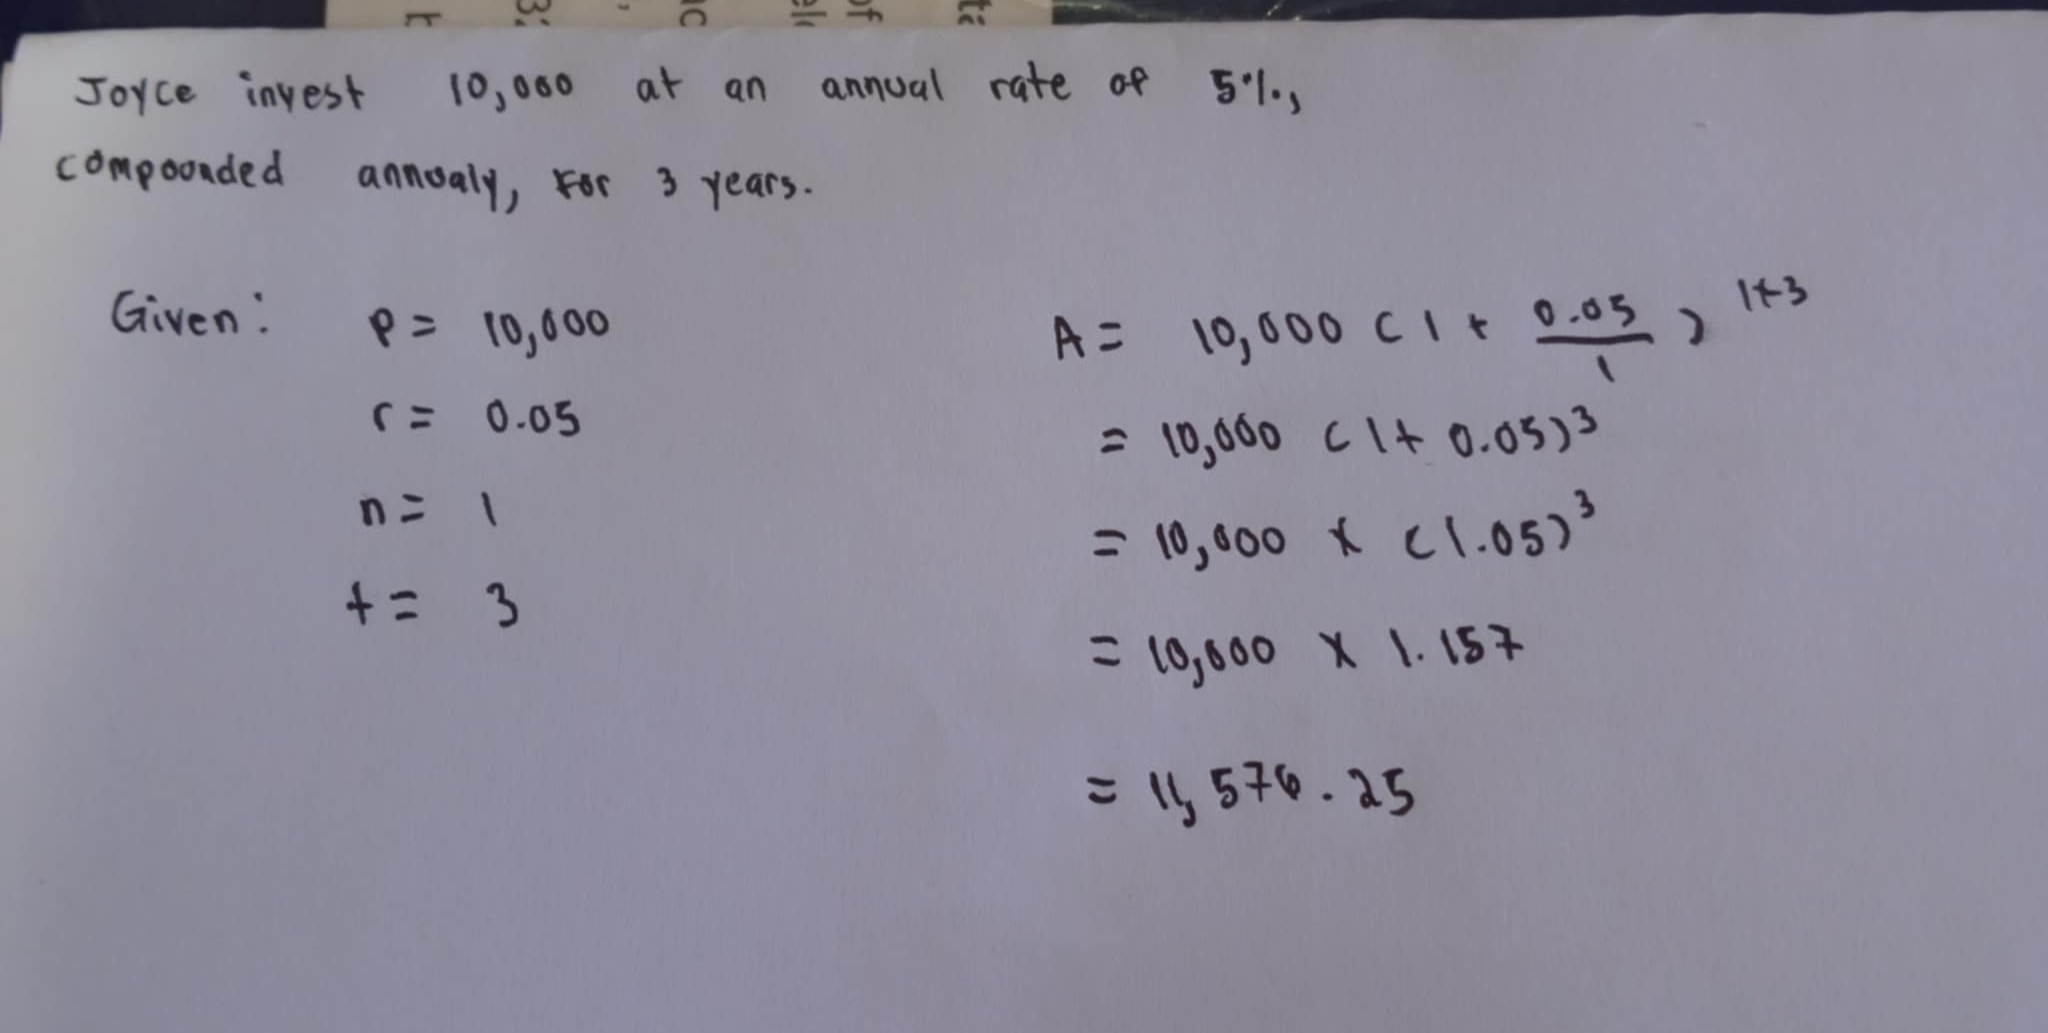 Joyce invest 10,000 at an annual rate of 5%,
compounded annualy, For 3 years.
Given: P = 10,000
r = 0.05
n = 1
t = 3
A = 10,000 (1 + 0.05/1)^1×3
= 10,000 (1+ 0.05)^3
= 10,000 × (1.05)^3
= 10,000 × 1.157
= 11,576.25